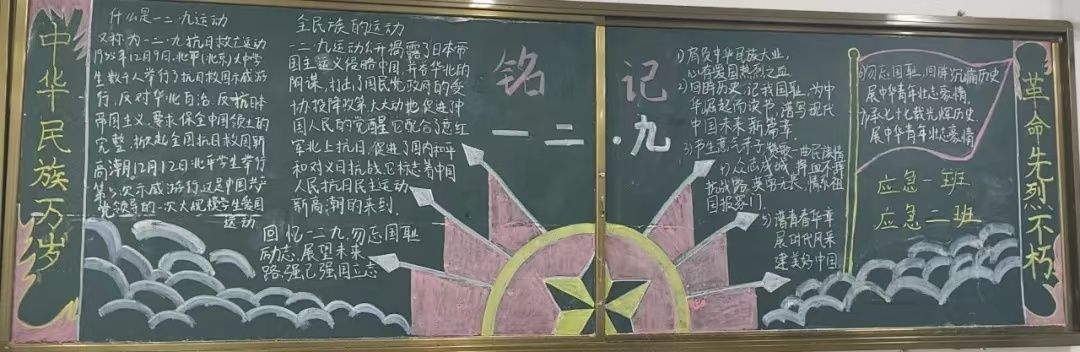 中华民族万岁
什么是一二·九运动
又称为一二·九抗日救亡运动
1935年12月9日,北平(北京)大中学
生数千人举行了抗日救国示威游
行,反对华北自治,反抗日本
帝国主义,要求保全中国领土的
完整,掀起全国抗日救国新
高潮12月12日北平学生举行
第5次示威游行,这是中国共
党领导的一次大规模学生爱国
运动
全民族的运动
一二·九运动公开揭露了日本帝
国主义侵略中国,并吞华北的
阴谋,打击了国民党政府的妥
协投降政策,大大地促进中
国人民的觉醒.它配合了红
军北上抗日,促进了国内和平
和对日抗战,它标志着中国
人民抗日民主运动
新高潮的到来.
回忆一二·九,勿忘国耻
励志,展望未来
路,强己强国立志
铭记
一二·九
1)肩负中华民族大业,
心存爱国热烈之血
2)回眸历史,记我国耻,为中
华崛起而读书,谱写现代
中国未来新篇章.
3)书生意气,
一曲民族情
4)众志成城,
抗战路,
国报家门.
5)谱青春华章
展时代风采
建美好中国
6)勿忘国耻,回眸沉痛历史
展中华青年壮志豪情.
7)承七十载光辉历史
展中华青年壮志豪情
应急一班
应急二班
革命先烈不朽